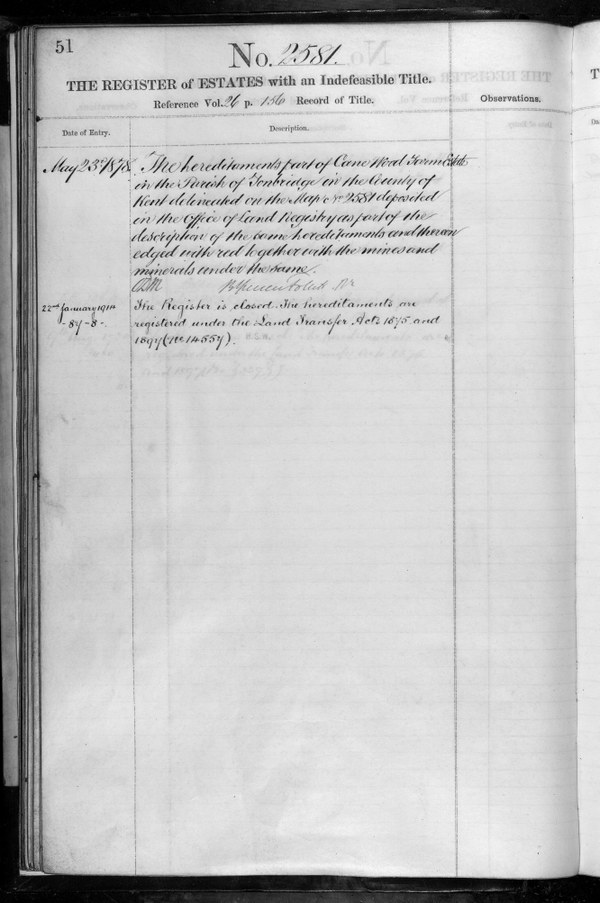 51
No. 2581.
THE REGISTER of ESTATES with an Indefeasible Title.
Reference Vol. 26 p. 156 Record of Title.
Observations.
Date of Entry.
Description.
May 23rd 1878
The hereditaments part of Cane Wood Farm Estate
in the Parish of Tonbridge in the County of
Kent delineated on the Map No 2581 deposited
in the Office of Land Registry as part of the
description of the same hereditaments and thereon
edged with red together with the mines and
minerals under the same.
22nd January 1914
- 87 - 8 -
The Register is closed. The hereditaments are
registered under the Land Transfer Acts 1875 and
1897 (No 14557).